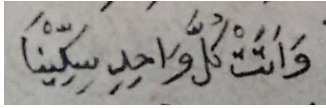 وَاٰتَتْ كُلَّ وَّاحِدٍ سِكِّيْنًا